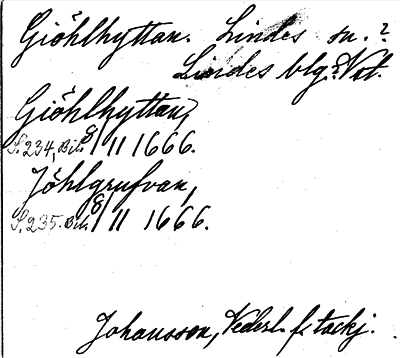 Giöhlhyttan. Lindes sn.?
Lindes blg? Vst.
Giöhlhyttan,
S. 234, Bil. 8/11 1666.
Jöhlgrufvan,
S. 235. Bil. 8/11 1666.
Johansson, Nederl. f. tackj.